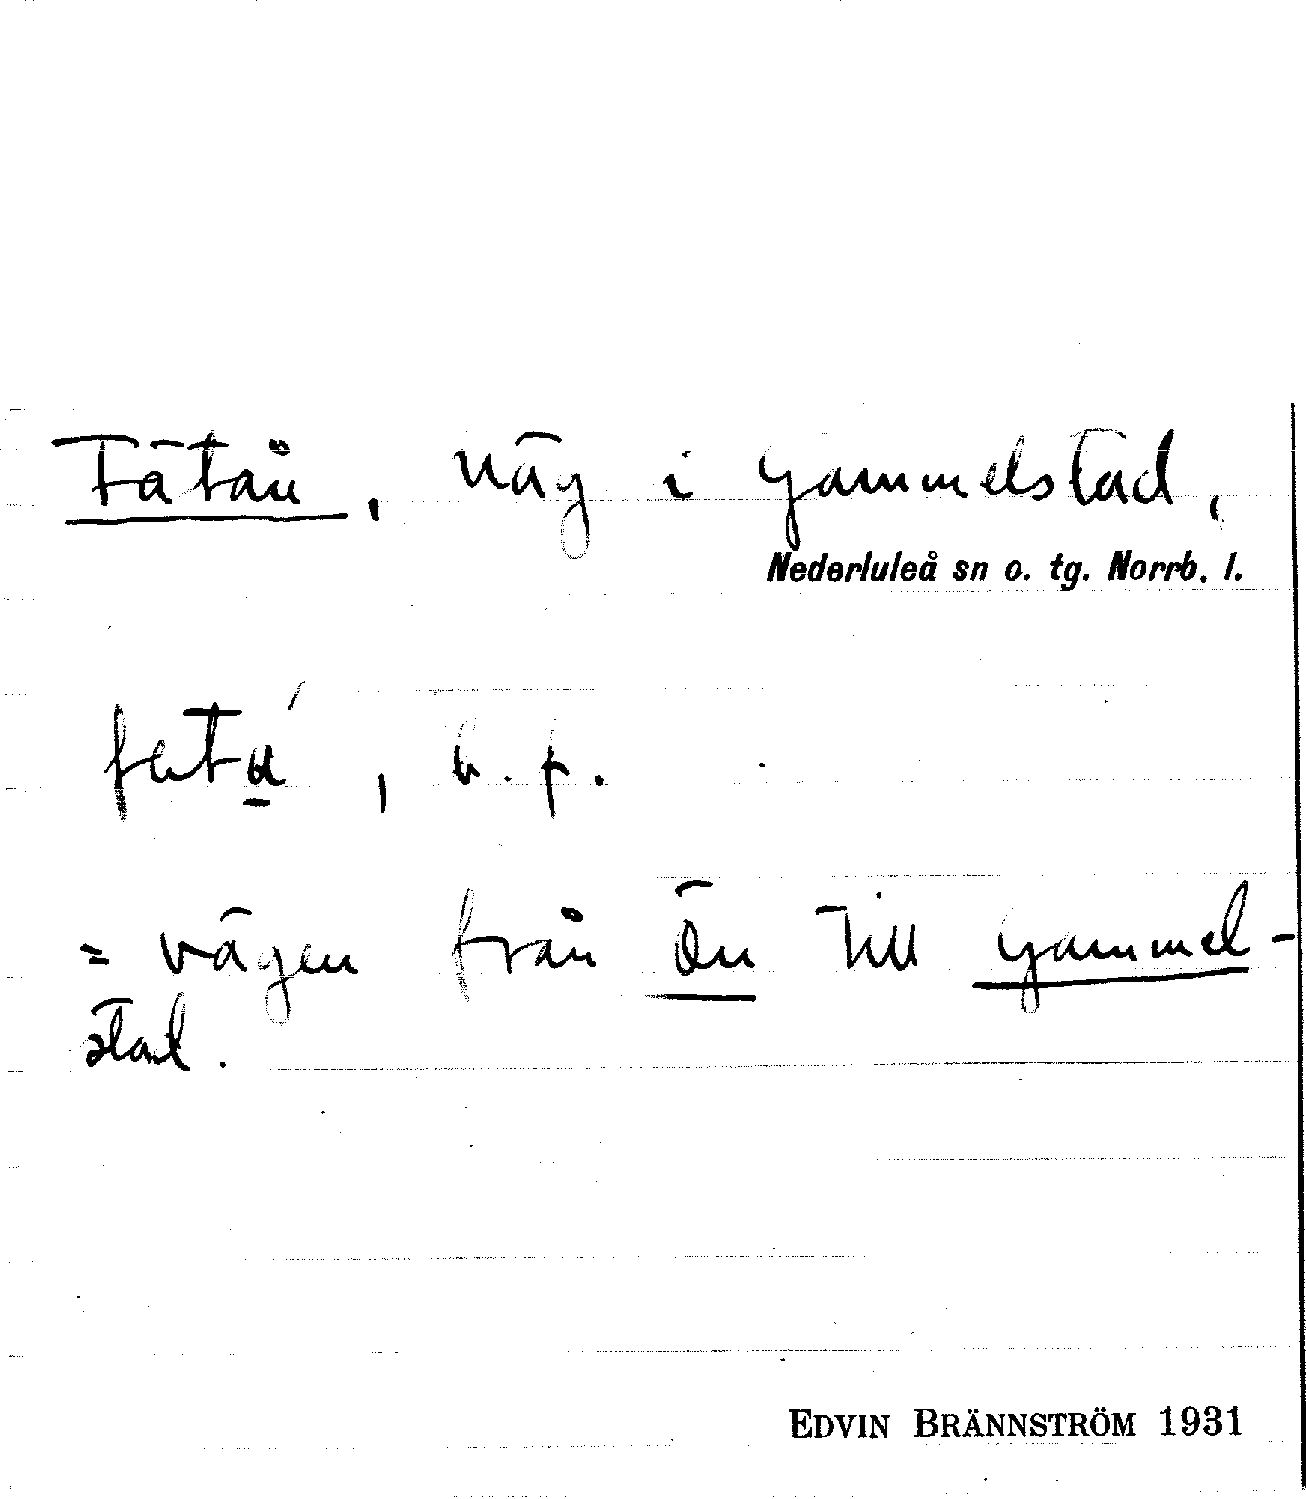 Fätån, väg i Gammelstad,
Nederluleå sn o. tg. Norrb. l.
b. f.
= vägen från Ön till Gammel-
stad.
EDVIN BRÄNNSTRÖM 1931